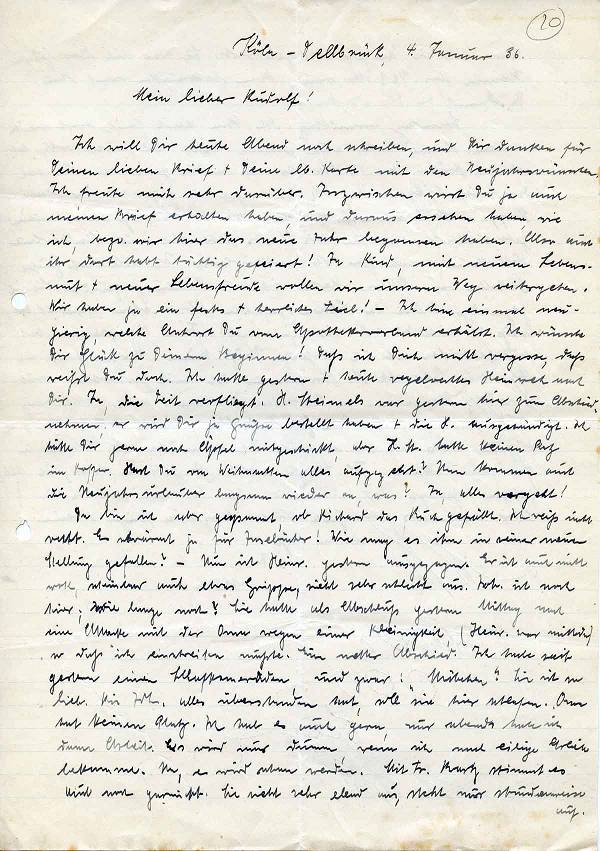 20
Köln - Dellbrück, 4. Januar 36.
Mein lieber Rudolf!
Ich will Dir heute Abend noch schreiben, und Dir danken für
Deinen lieben Brief + Deine lb. Karte mit den Neujahrswünschen.
Ich freute mich sehr darüber. Inzwischen wirst Du ja auch
meinen Brief erhalten haben, und daraus ersehen haben wie
ich, bezw. wir hier das neue Jahr begonnen haben. Also auch
ihr dort habt tüchtig gefeiert! Ja Kind, mit neuem Lebens-
mut + neuer Lebensfreude wollen wir unseren Weg weitergehen.
Wir haben ja ein festes + herrliches Ziel! - Ich bin einmal neu-
gierig, welche Antwort Du vom Apothekerverband erhälst. Ich wünsche
Dir Glück zu Deinem Beginnen! Daß ich Dich nicht vergesse, das
weißt Du doch. Ich hatte gestern + heute regelrechtes Heimweh nach
Dir. Ja, die Zeit verfliegt. H. Steimels war gestern hier zum Abschied-
nehmen, er wird Dir ja Grüße bestellt haben + die H. ausgehändigt. Ich
hätte Dir gerne noch Äpfel mitgeschickt, aber H. St. hatte keinen Platz
im Koffer. Hast Du von Weihnachten alles aufgezehrt? Nun kommen auch
die Neujahrsurlauber langsam wieder an, was? Ja, alles vergeht!
Da bin ich aber gespannt, ob Richard das Buch gefällt. Ich weiß nicht
recht. Er schwärmt ja für Inselbücher! Wie mag es ihm in seiner neuen
Stellung gefallen? - Nun ist Heinr. gestern ausgezogen. Er ist auch nicht
wohl, scheinbar auch etwas Grippe, sieht sehr schlecht aus. Joh. ist noch
hier; wie lange noch? Sie hatte als Abschluß gestern Mittag noch
eine Attacke mit der Oma wegen einer Kleinigkeit, (Heinr. war mittendrin)
so daß ich einstreiten mußte. Ein netter Abschied. Ich habe seit
gestern einen und zwar: "Mübchen". Sie ist so
lieb. Bis Joh. alles überstanden hat, soll sie hier schlafen. Oma
hat keinen Platz. Ich hab es auch gern, nur abends habe ich
dann Arbeit. Es wird nur dumm wenn ich mal eilige Arbeit
bekomme. Na, es wird schon werden. Mit Fr. Kurtz stimmt es
auch noch garnicht. Sie sieht sehr elend aus, steht nur stundenweise
auf.